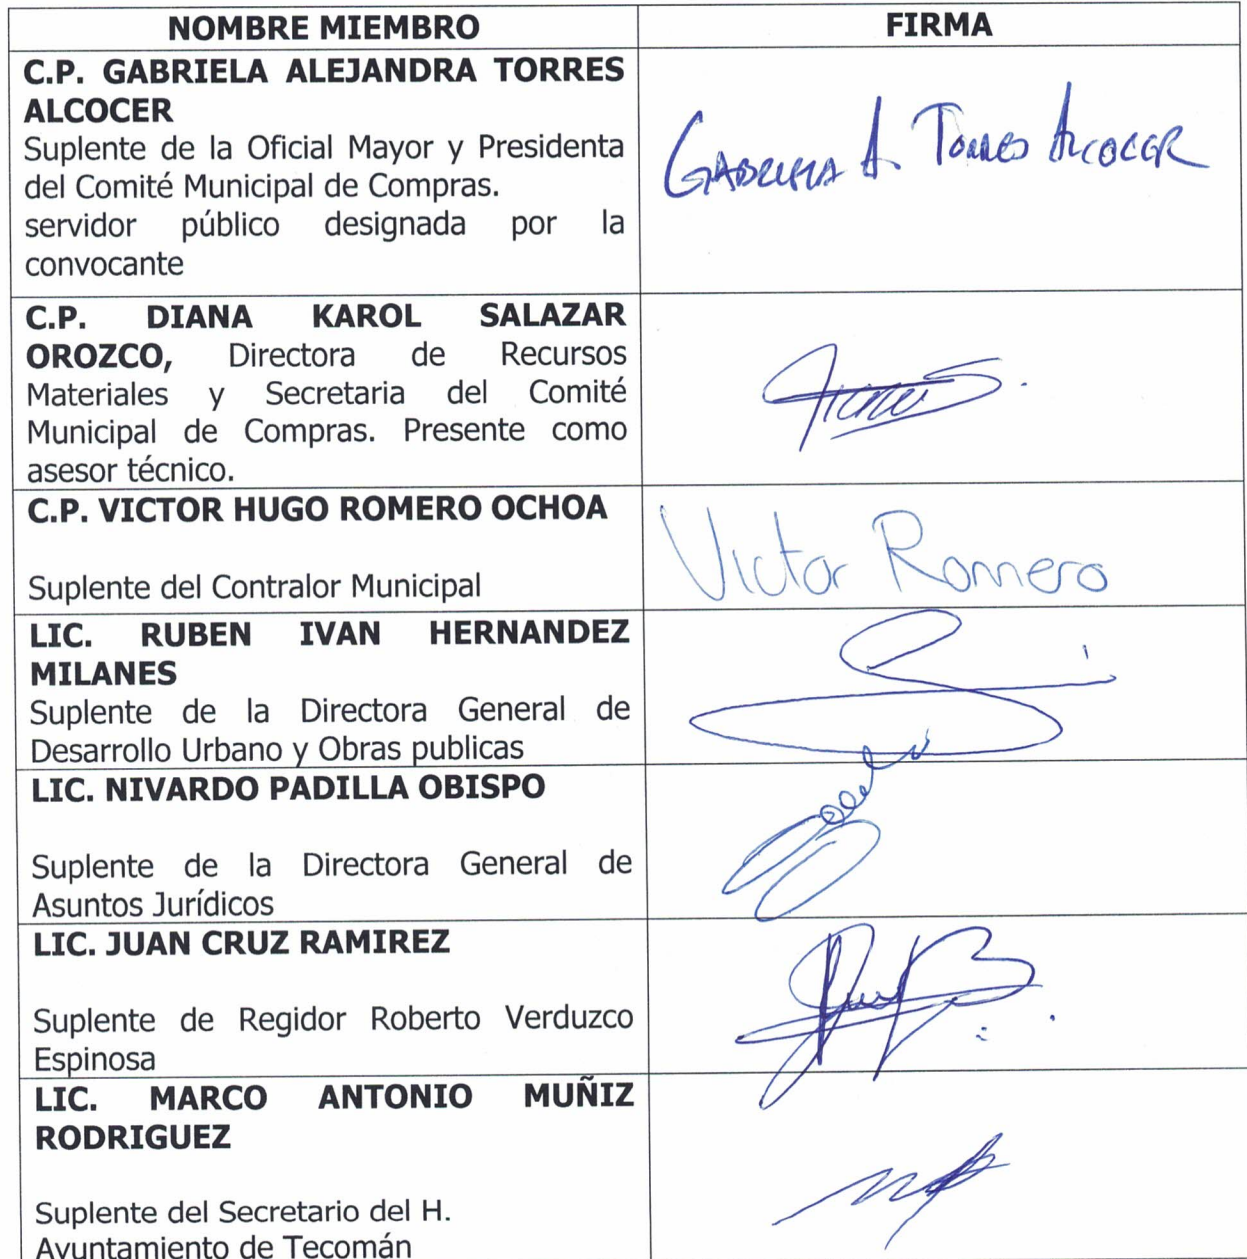 NOMBRE MIEMBRO FIRMA
C.P. GABRIELA ALEJANDRA TORRES
ALCOCER
Suplente de la Oficial Mayor y Presidenta
del Comité Municipal de Compras.
servidor público designada por la
convocante
GABRIELA A. TORRES ALCOCER
C.P. DIANA KAROL SALAZAR
OROZCO, Directora de Recursos
Materiales y Secretaria del Comité
Municipal de Compras. Presente como
asesor técnico.
C.P. VICTOR HUGO ROMERO OCHOA
Suplente del Contralor Municipal
Victor Romero
LIC. RUBEN IVAN HERNANDEZ
MILANES
Suplente de la Directora General de
Desarrollo Urbano y Obras publicas
LIC. NIVARDO PADILLA OBISPO
Suplente de la Directora General de
Asuntos Jurídicos
LIC. JUAN CRUZ RAMIREZ
Suplente de Regidor Roberto Verduzco
Espinosa
LIC. MARCO ANTONIO MUÑIZ
RODRIGUEZ
Suplente del Secretario del H.
Ayuntamiento de Tecomán